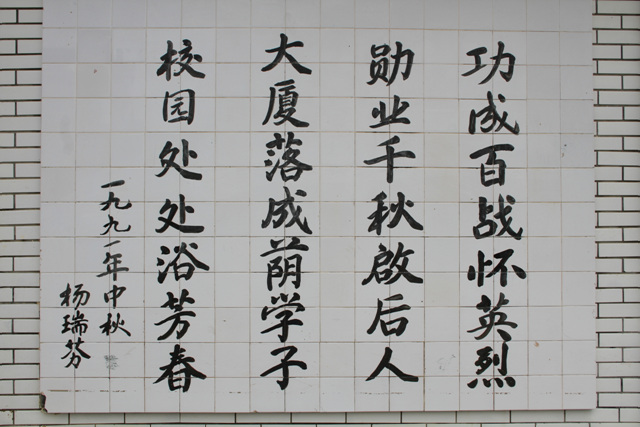 功成百战怀英烈
勋业千秋啟后人
大厦落成荫学子
校园处处浴芳春
一九九一年中秋
杨瑞芬